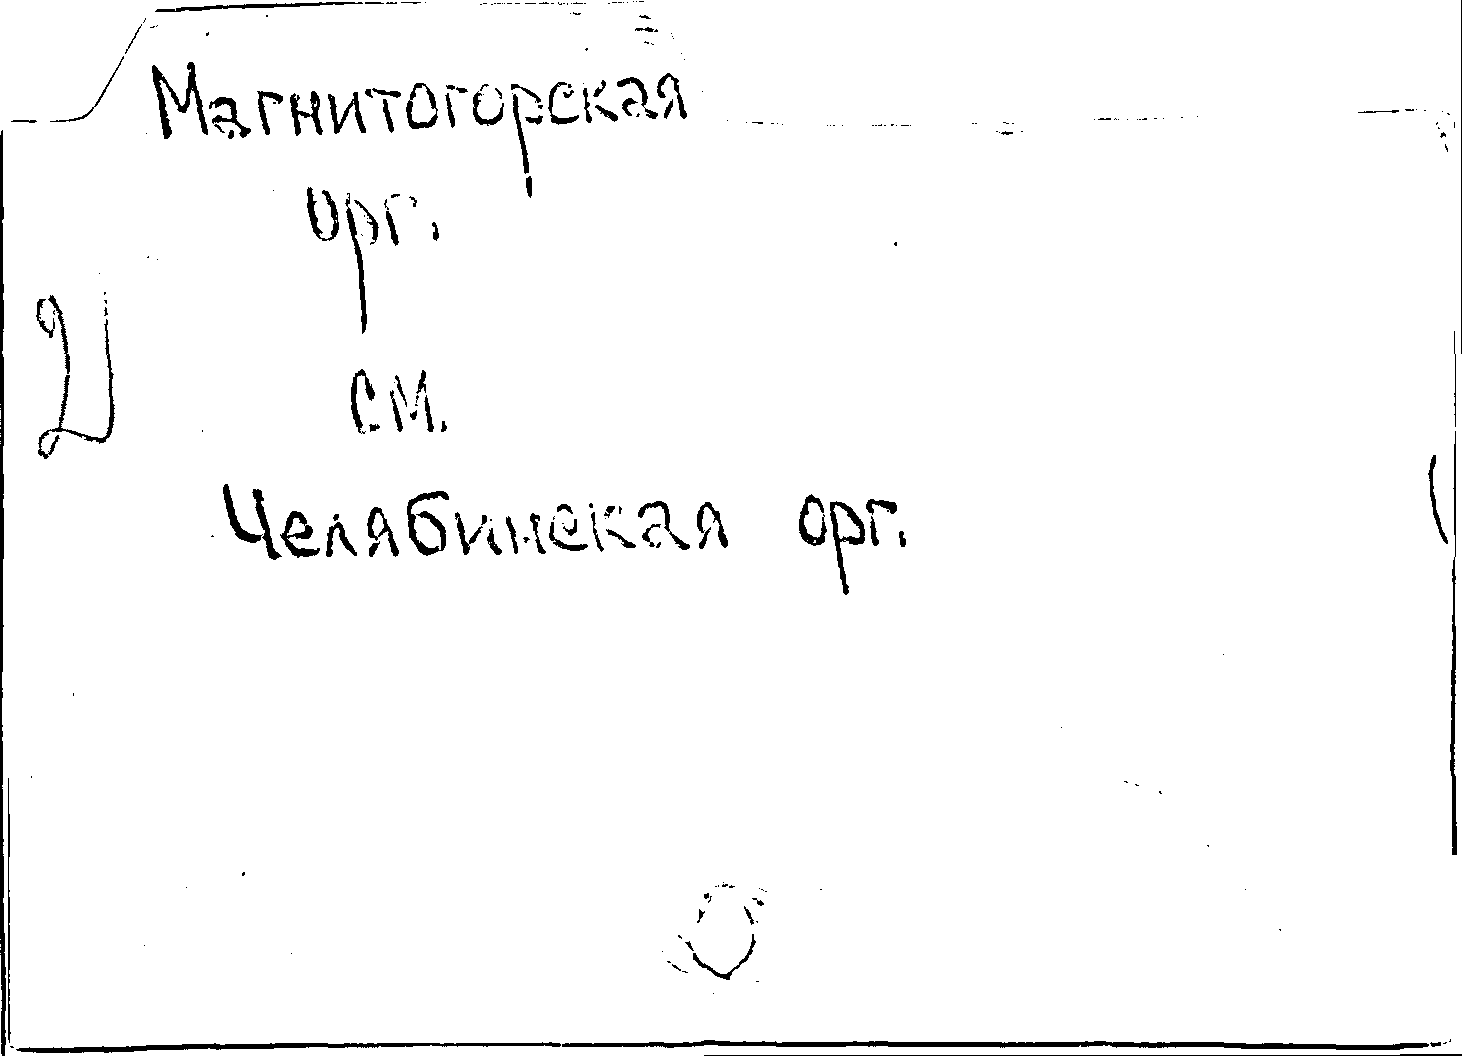 Магнитогорская
орг.
см.
Челябинская орг.